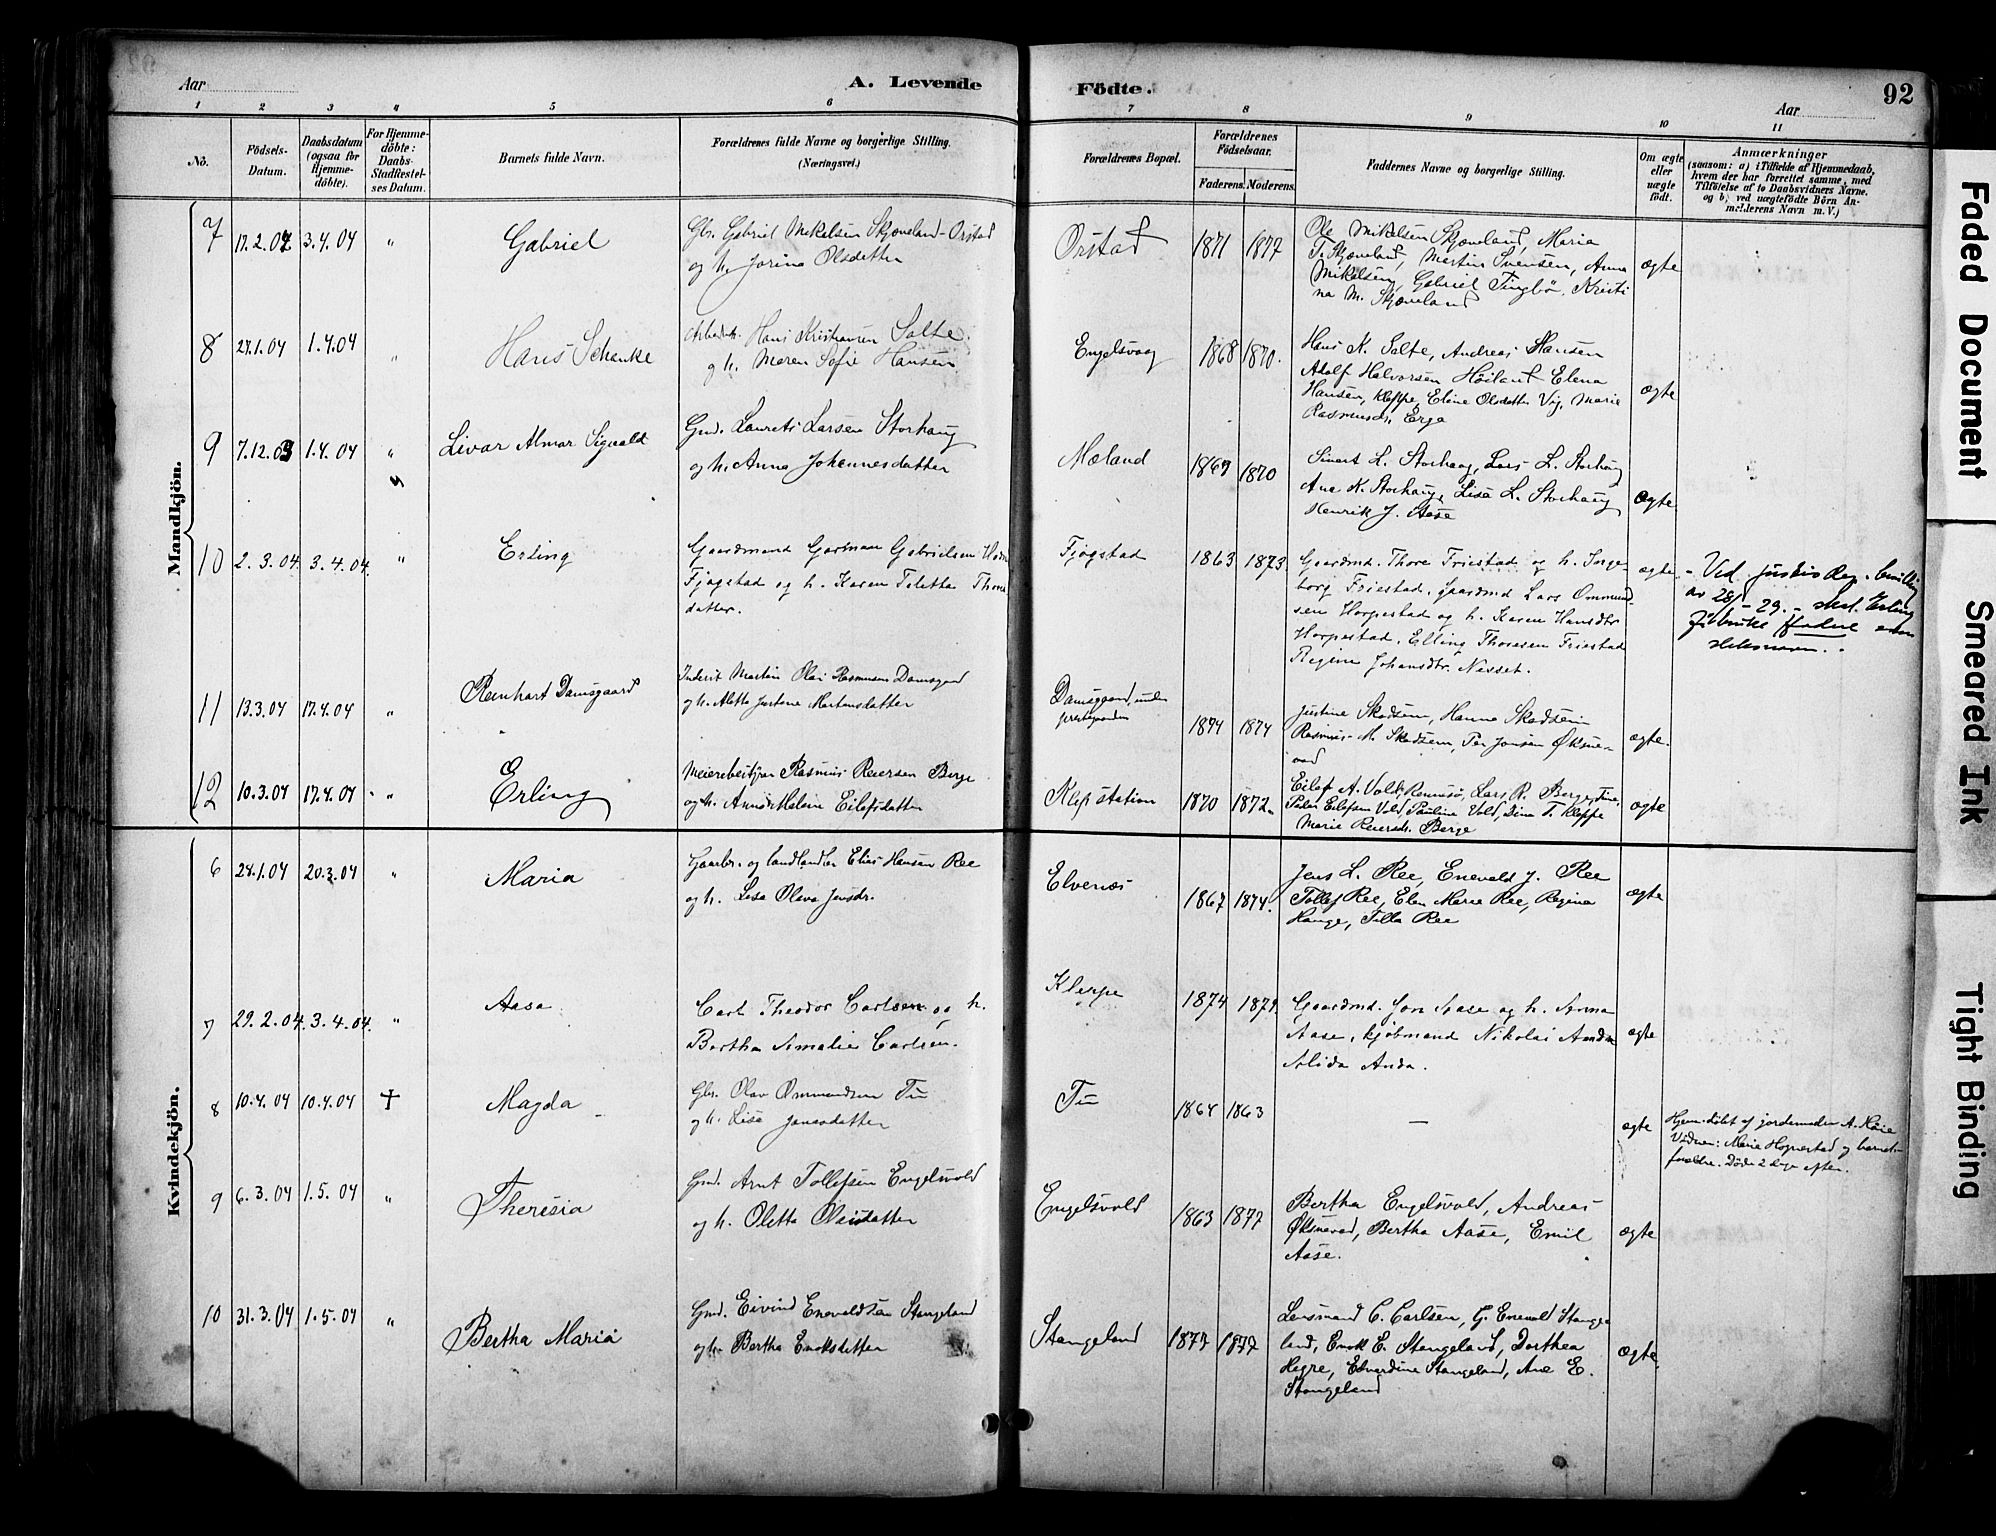 Aar
A. Levende
Födte.
Aar
92
1 2 3 4 5 6 7 8 9 10 11
No.
Födsels-Datum.
Daabsdatum (ogsaa for Hjemme-döbte).
For Hjemme-döbte: Daabs-Stadfæstel-ses Datum.
Barnets fulde Navn.
Forældrenes fulde Navne og borgerlige Stilling. (Næringsvei.)
Forældrenes Bopæl.
Forældrenes Födselsaar.
Faderens. Moderens.
Faddernes Navne og borgerlige Stilling.
Om ægte eller uægte födt.
Anmærkninger
(saasom: a) i Tilfælde af Hjemmedaab, hvem der har forrettet samme, med Tilföielse af to Daabsvidners Navne, og b) ved uægtefödte Börn An-melderens Navn m. V.)
Mandkjön.
7 17.2.04 3.4.04 " Gabriel
Gbr. Gabriel Mikelsen Skjæveland-Orstad
og h. Jorina Olsdatter
Orstad 1871 1877
Ole Mikelsen Skjæveland, Maria
T. Skjæveland, Martin Svensen, Anna
Mikelsen, Gabriel Tingbø, Kristi
na M. Skjæveland
ægte
8 27.1.04 1.4.04 " Hans Schanke
Arbeidsm. Hans Kristiansen Salte
og h. Maren Sofie Hansen
Engelsvaag 1868 1870.
Hans K. Salte, Andreas Hansen
Adolf Halvorsen Høiland Elena
Hansen, Kleppe, Eline Olsdatter Vig, Marie
Rasmusdr. Erga
ægte
9 7.12.03 1.4.04 " Livar Almar Sigvald
Gmd. Laurits Larsen Storhaug
og h. Anna Johannesdatter
Mæland 1869 1870
Sivert L. Storhaug, Lars L. Storhaug
Ane K. Storhaug, Lisa L. Storhaug
Henrik J. Aase
ægte
10 2.3.04. 3.4.04. " Erling
Gaardmand Gorman Gabrielsen
Fjogstad og h. Karen Teletta Thores
datter.
Fjogstad 1863 1873
Gaardmd. Thore Friestad og h. Inge
borg Friestad, gaardmd Lars Ommund-
sen Horpestad og h. Karen Hansdtr
Horpestad, Elling Thoresen Friestad
Regine Johansdtr. Nesset.
ægte
- Ved Justis Dep. bevilling
av 28/ - 29. - skal Erling
bruke som
slektsnavn.
11 13.3.04 17.4.04 " Reinhart Damsgaard
Inderst Martin Olai Rasmussen Damsgaard
og h. Aletta Justine Mortensdatter
Damsgaard, under
præstegaarden
1874 1874
Justine Skadsem, Hanna Skadsem
Rasmus M. Skadsem, Per Jonsen Øksne-
vad
ægte.
12 10.3.04 17.4.04 " Erling
Meieribestyrer Rasmus Reiersen Berge
og h. Anna Malene Eilefsdatter
Klep station 1870 1872
Eilef A. Vold, Rennesø, Lars R. Berge, Time,
Peder Eilefsen Vold, Pauline Vold, Dina T. Kleppe
Marie Reiersdr. Berge
ægte
Kvindekjön.
6 24.1.04 20.3.04 " Maria
Gaarbr. og landhandler Elias Hansen Ree
og h. Lisa Olava Jensdr.
Elvenæs 1867 1874.
Jens L. Ree, Enevald J. Ree
Tollef Ree, Elen Marie Ree, Regina
Hauge, Tilla Ree
ægte
7 29.2.04. 3.4.04. " Aasa
Carl Theodor Carlsen og h.
Bertha Amalie Carlsen.
Kleppe 1874 1879.
Gaardmd. Jon Aase og h. Anna
Aase, kjøbmand Nikolai Anda
Alida Anda.
ægte
8 10.4.04 10.4.04 † Magda
Gbr. Olav Ommundsen Tu
og h. Lisa Jonasdatter
Tu 1864 1863
—
ægte
Hjemdøbt af jordemoder A. Kaie
Vidner: Marie Hognestad og barnets
forældre. Døde 2 dage efter.
9 6.3.04 1.5.04 " Theresia
Gmd. Arnt Tollefsen Engelsvold
og h. Oletta Olausdatter
Engelsvold 1863 1877
Bertha Engelsvold, Andreas
Øksnevad, Bertha Aase, Emil
Aase.
ægte
10 31.3.04 1.5.04 " Bertha Maria
Gmd. Eivind Enevaldsen Stangeland
og h. Bertha Eriksdatter
Stangeland 1877 1877
Lensmand C. Carlsen, G. Enevald Stange
land, Enok E. Stangeland, Dorthea
Hegre, Edvardine Stangeland, Ane E.
Stangeland
ægte.
Faded Document
Smeared Ink
Tight Binding